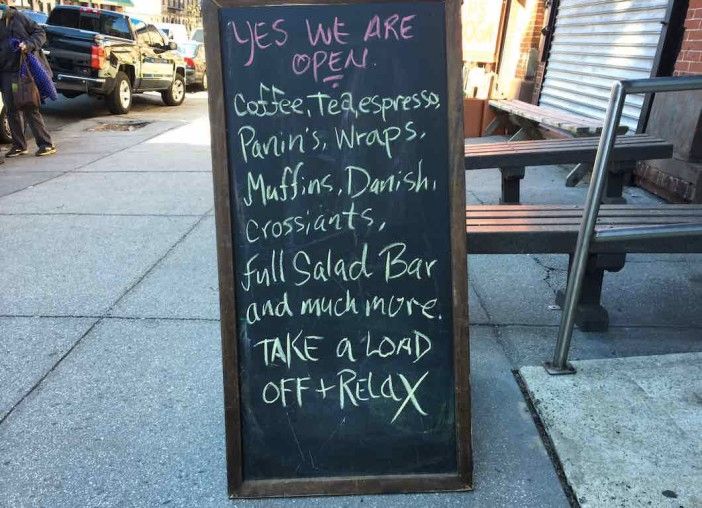 YES WE ARE
OPEN.
Coffee, Tea, espresso,
Panin's, Wraps,
Muffins, Danish,
Crossiants,
full Salad Bar
and much more.
TAKE a LOAD
OFF + RelaX